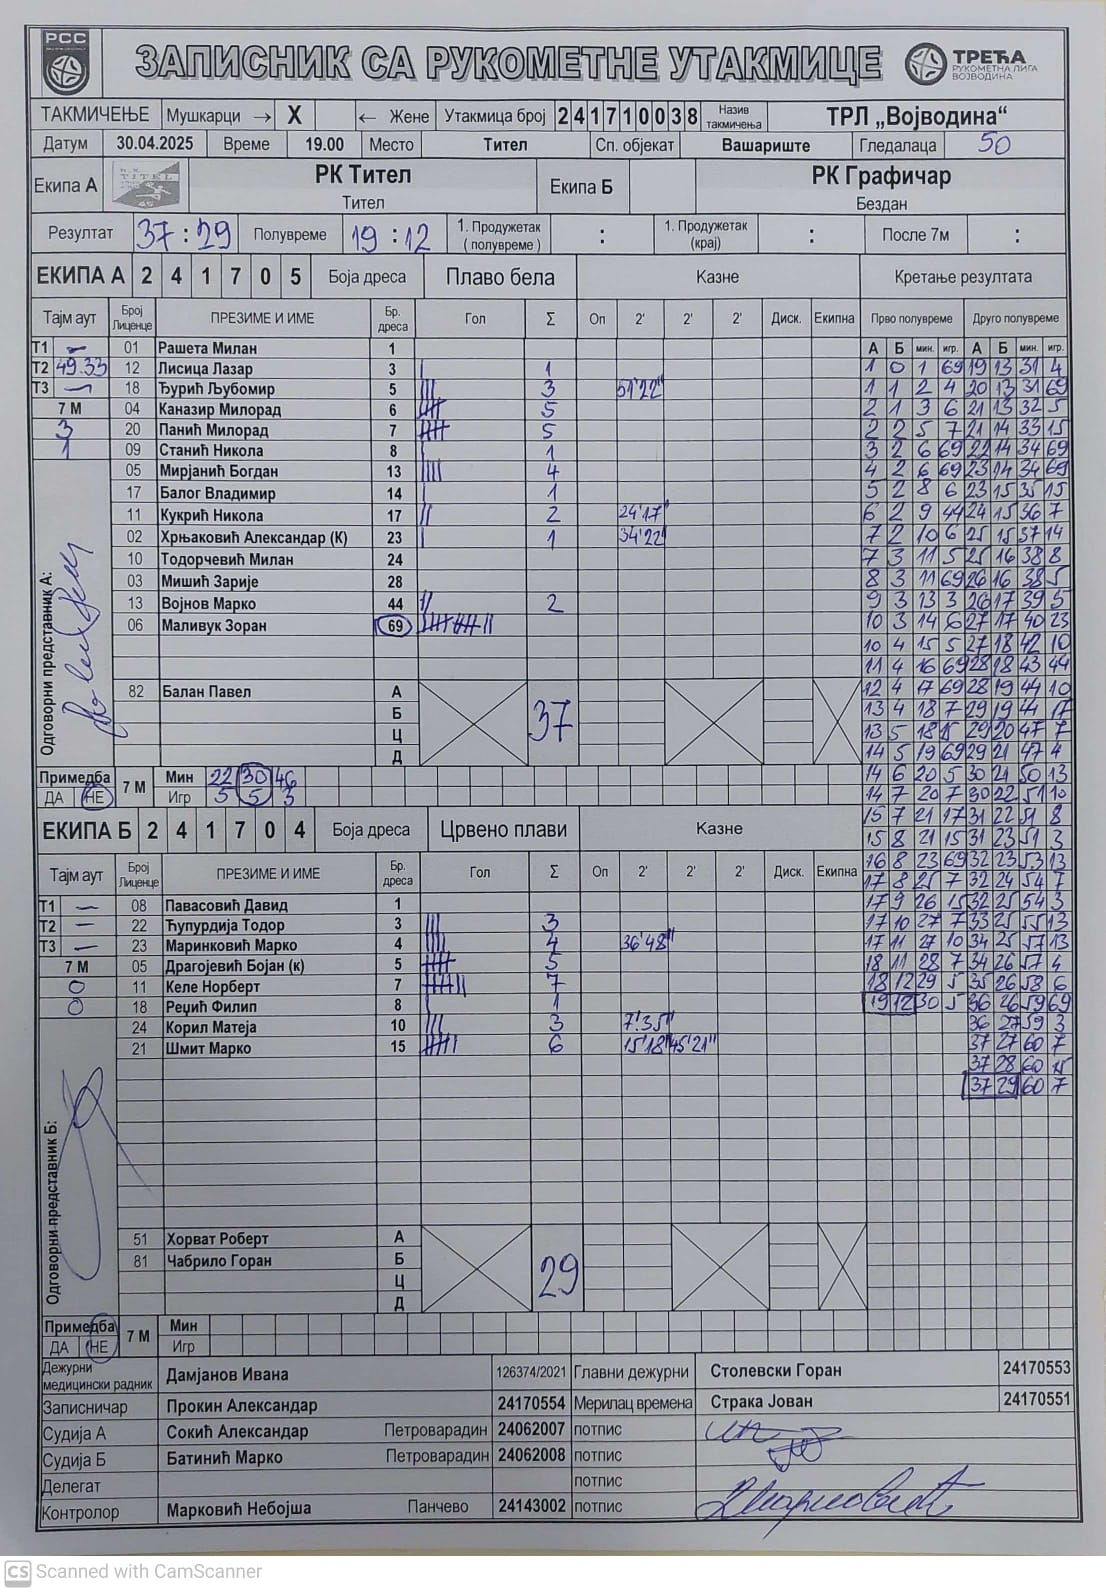 РСС
ЗАПИСНИК СА РУКОМЕТНЕ УТАКМИЦЕ
ТРЕЋА
РУКОМЕТНА ЛИГА
ВОЈВОДИНА
ТАКМИЧЕЊЕ Мушкарци → X ← Жене Утакмица број 2 4 1 7 1 0 0 3 8 Назив такмичења ТРЛ „Војводина“
Датум 30.04.2025 Време 19.00 Место Тител Сп. објекат Вашариште Гледалаца 50
Екипа А TITEL РК Тител Екипа Б РК Графичар
Тител Бездан
Резултат 37 : 29 Полувреме 19 : 12 1. Продужетак (полувреме) : 1. Продужетак (крај) : После 7м :
ЕКИПА А 2 4 1 7 0 5 Боја дреса Плаво бела Казне Кретање резултата
Тајм аут Број Лиценце ПРЕЗИМЕ И ИМЕ Бр. дреса Гол Σ Оп 2' 2' 2' Диск. Екипна Прво полувреме Друго полувреме
Т1 – 01 Рашета Милан 1 А Б мин. игр. А Б мин. игр.
Т2 49.33 12 Лисица Лазар 3 | 1 1 0 1 69 19 13 31 4
Т3 – 18 Ђурић Љубомир 5 ||| 3 51'22" 1 1 2 4 20 13 31 69
7 М 04 Каназир Милорад 6 5 2 1 3 6 21 13 32 5
3 20 Панић Милорад 7 5 2 2 5 7 21 14 33 15
1 09 Станић Никола 8 | 1 3 2 6 69 22 14 34 69
05 Мирјанић Богдан 13 |||| 4 4 2 6 69 23 14 34 69
17 Балог Владимир 14 | 1 5 2 8 6 23 15 35 15
11 Кукрић Никола 17 || 2 24'17" 6 2 9 44 24 15 36 7
02 Хрњаковић Александар (К) 23 | 1 34'22" 7 2 10 6 25 15 37 14
10 Тодорчевић Милан 24 7 3 11 5 25 16 38 8
03 Мишић Зарије 28 8 3 11 69 26 16 38 5
13 Војнов Марко 44 || 2 9 3 13 3 26 17 39 5
06 Маливук Зоран 69 10 3 14 6 27 17 40 23
10 4 15 5 27 18 42 10
11 4 16 69 28 18 43 44
82 Балан Павел А 37 12 4 17 69 28 19 44 10
Б 13 4 18 7 29 19 44 17
Ц 13 5 18 15 29 20 47 7
Д 14 5 19 69 29 21 47 4
Одговорни представник А:
Примедба 7 М Мин 22 30 46 14 6 20 5 30 21 50 13
ДА НЕ Игр 5 5 3 14 7 20 7 30 22 51 10
ЕКИПА Б 2 4 1 7 0 4 Боја дреса Црвено плави Казне 15 7 21 17 31 22 51 8
15 8 21 15 31 23 51 3
Тајм аут Број Лиценце ПРЕЗИМЕ И ИМЕ Бр. дреса Гол Σ Оп 2' 2' 2' Диск. Екипна 16 8 23 69 32 23 53 13
17 8 25 7 32 24 54 7
Т1 – 08 Павасовић Давид 1 17 9 26 15 32 25 54 3
Т2 – 22 Ћупурдија Тодор 3 ||| 3 17 10 27 7 33 25 55 13
Т3 – 23 Маринковић Марко 4 |||| 4 36'48" 17 11 27 10 34 25 57 13
7 М 05 Драгојевић Бојан (к) 5 5 18 11 28 7 34 26 57 4
0 11 Келе Норберт 7 7 18 12 29 5 35 26 58 6
0 18 Реџић Филип 8 | 1 19 12 30 5 36 26 59 69
24 Корил Матеја 10 ||| 3 7'35" 36 27 59 3
21 Шмит Марко 15 6 15'18" 45'21" 37 27 60 7
37 28 60 15
37 29 60 7
Одговорни представник Б:
51 Хорват Роберт А 29
81 Чабрило Горан Б
Ц
Д
Примедба 7 М Мин
ДА НЕ Игр
Дежурни медицински радник Дамјанов Ивана 126374/2021 Главни дежурни Столевски Горан 24170553
Записничар Прокин Александар 24170554 Мерилац времена Страка Јован 24170551
Судија А Сокић Александар Петроварадин 24062007 потпис
Судија Б Батинић Марко Петроварадин 24062008 потпис
Делегат потпис
Контролор Марковић Небојша Панчево 24143002 потпис
CS Scanned with CamScanner